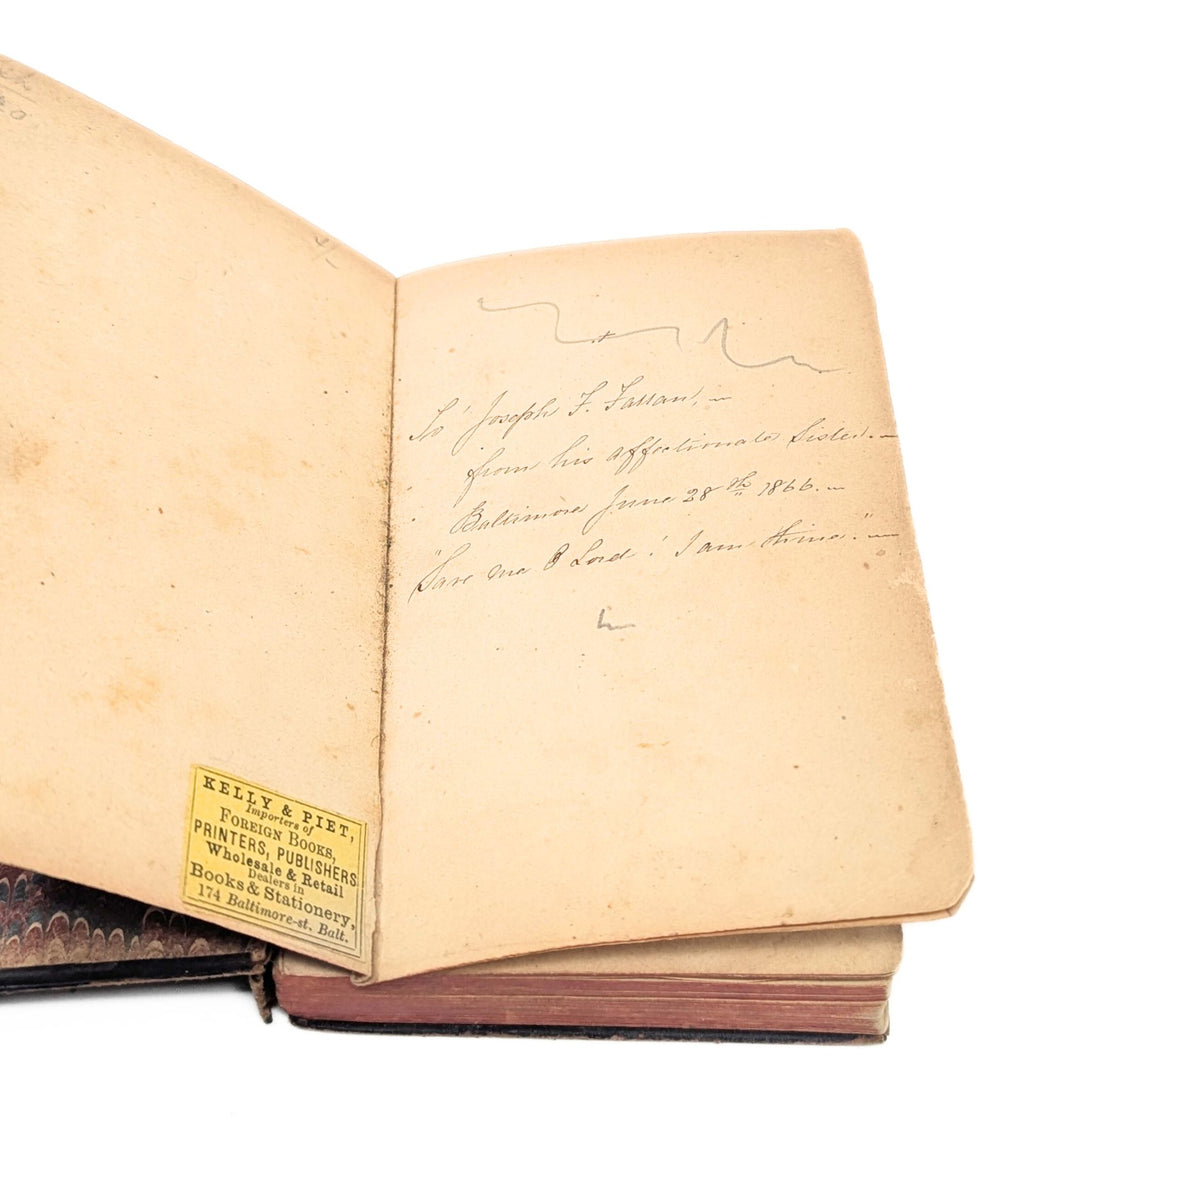 KELLY & PIET,
Importers of
FOREIGN BOOKS,
PRINTERS, PUBLISHERS
Wholesale & Retail
Dealers in
Books & Stationery,
174 Baltimore-st. Balt.
To Joseph F. Fallan, —
from his affectionate Sister. —
Baltimore June 28th 1866. —
"Save me O Lord! I am thine." —